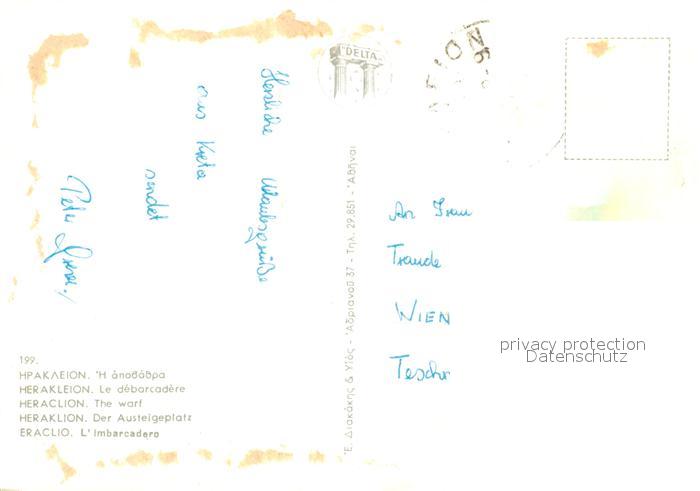 Herzliche Urlaubsgrüße
aus Kreta
sendet
Peter
DELTA
An Frau
Traude
WIEN
privacy protection
Datenschutz
199.
ΗΡΑΚΛΕΙΟΝ. Ἡ ἀποβάθρα
HERAKLEION. Le débarcadère
HERACLION. The warf
HERAKLION. Der Austeigeplatz
ERACLIO. L'Imbarcadero
Ἐ. Διακάκης & Υἱός - Ἀδριανοῦ 37 - Τηλ. 29.851 - Ἀθῆναι